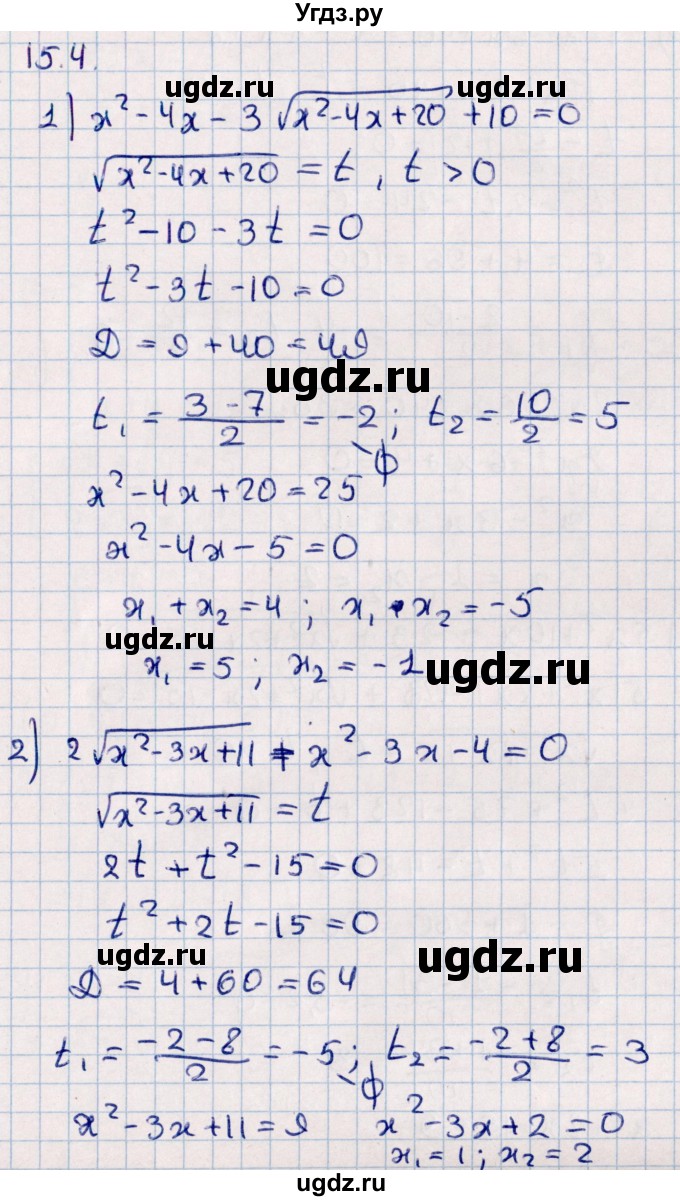 Угдз.ру
15.4.
ugdz.ru ugdz.ru
1) x² - 4x - 3 √(x² - 4x + 20) + 10 = 0
√(x² - 4x + 20) = t , t > 0
t² - 10 - 3t = 0
t² - 3t - 10 = 0
D = 9 + 40 = 49
ugdz.ru
t₁ = (3 - 7)/2 = -2 ; t₂ = 10/2 = 5
ф
x² - 4x + 20 = 25
ugdz.ru
x² - 4x - 5 = 0
x₁ + x₂ = 4 ; x₁ · x₂ = -5
ugdz.ru
x₁ = 5 ; x₂ = -1
ugdz.ru
2) 2 √(x² - 3x + 11) + x² - 3x - 4 = 0
√(x² - 3x + 11) = t
2t + t² - 15 = 0
t² + 2t - 15 = 0
ugdz.ru ugdz.ru
D = 4 + 60 = 64
t₁ = (-2 - 8)/2 = -5 ; t₂ = (-2 + 8)/2 = 3
ф
x² - 3x + 11 = 9 x² - 3x + 2 = 0
x₁ = 1 ; x₂ = 2
ugdz.ru ugdz.ru